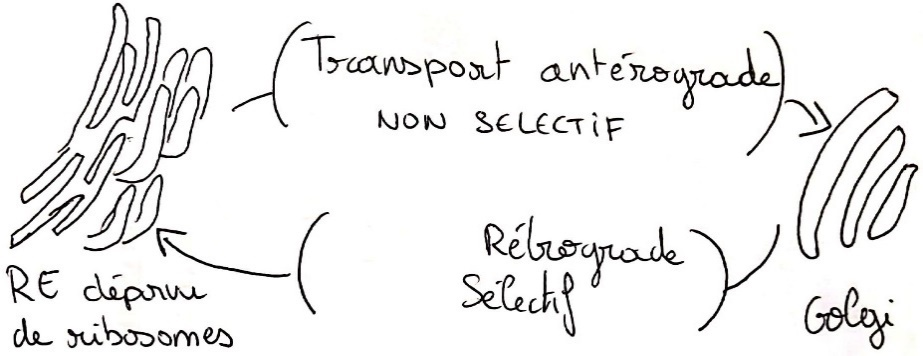 Transport antérograde
NON SELECTIF
Rétrograde
Sélectif
RE dépourvu
de ribosomes
Golgi